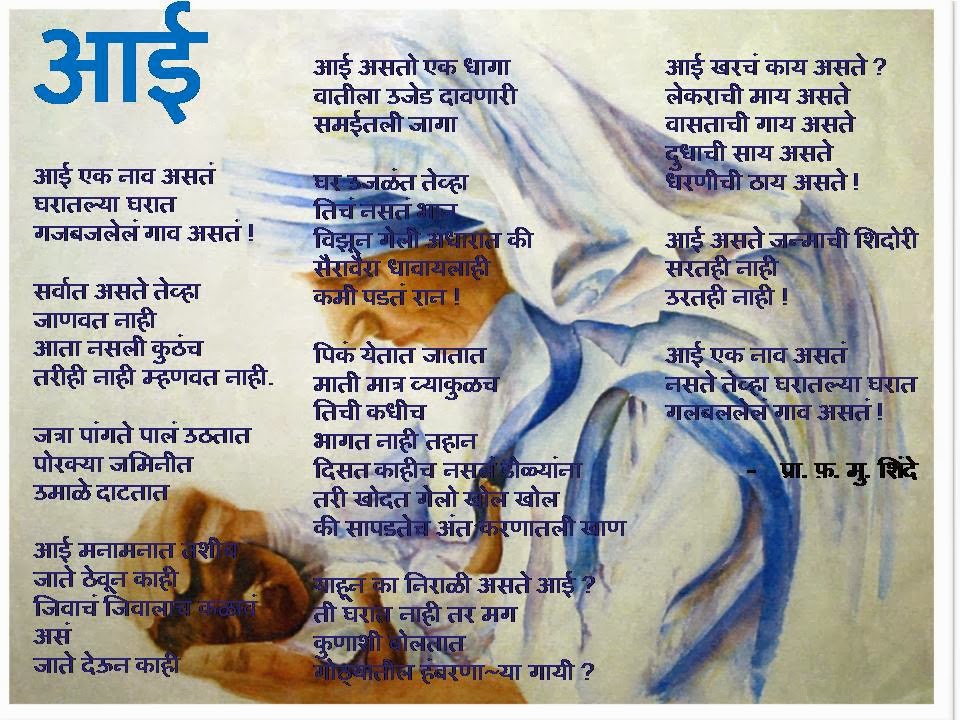 आई
आई एक नाव असतं
घरातल्या घरात
गजबजलेलं गाव असतं !
सर्वात असते तेव्हा
जाणवत नाही
आता नसली कुठंच
तरीही नाही म्हणवत नाही.
जत्रा पांगते पालं उठतात
पोरक्या जमिनीत
उमाळे दाटतात
आई मनामनात तशीच
जाते ठेवून काही
जिवाचं जिवालाच कळावं
असं
जाते देऊन काही
आई असतो एक धागा
वातीला उजेड दावणारी
समईतली जागा
घर उजळंत तेव्हा
तिचं नसतं भान
विझून गेली अंधारात की
सैरावैरा धावायलाही
कमी पडतं रान !
पिकं येतात जातात
माती मात्र व्याकुळच
तिची कधीच
भागत नाही तहान
दिसत काहीच नसलं डोळ्यांना
तरी खोदत गेलो खोल खोल
की सापडतेच अंतःकरणातली खाण
याहून का निराळी असते आई ?
ती घरात नाही तर मग
कुणाशी बोलतात
गोठ्यातील हंबरणा~या गायी ?
आई खरचं काय असते ?
लेकराची माय असते
वासताची गाय असते
दुधाची साय असते
धरणीची ठाय असते !
आई असते जन्माची शिदोरी
सरतही नाही
उरतही नाही !
आई एक नाव असतं
नसते तेव्हा घरातल्या घरात
गलबललेलं गाव असतं !
- प्रा. फ़. मु. शिंदे